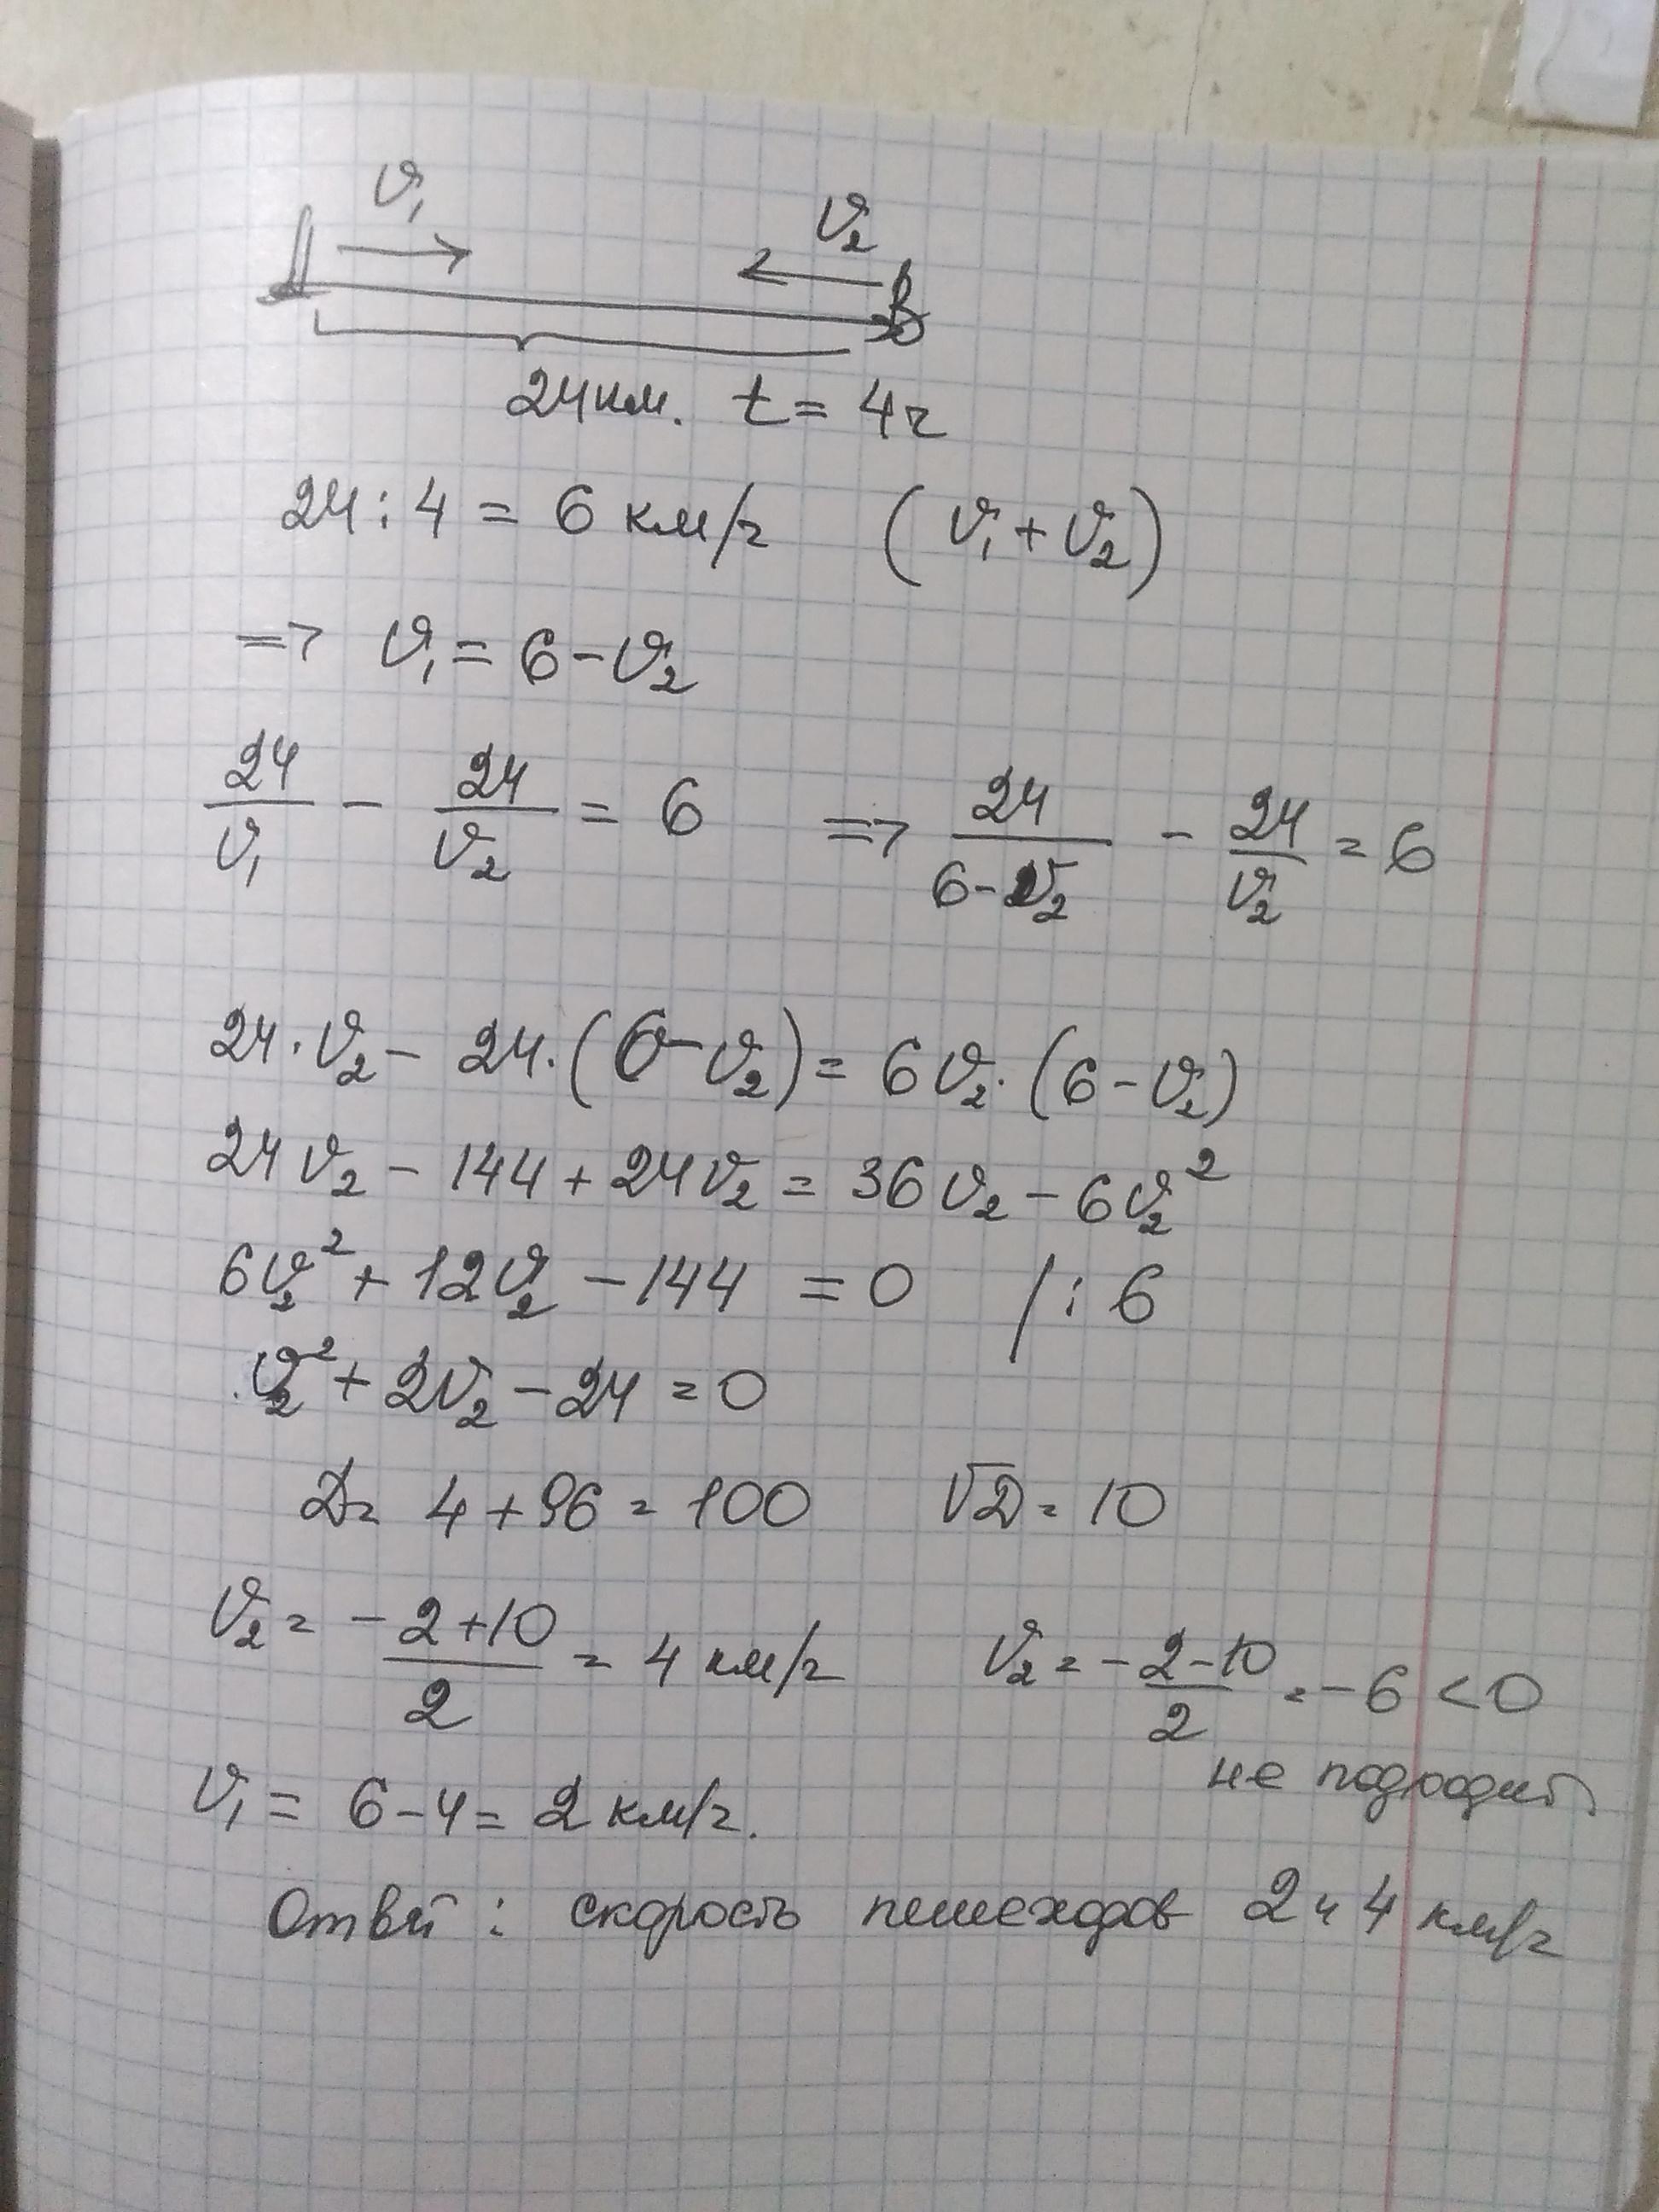 v₁
v₂
A
B
24 км. t = 4 ч
24 : 4 = 6 км/ч (v₁ + v₂)
=> v₁ = 6 - v₂
24/v₁ - 24/v₂ = 6 => 24/(6 - v₂) - 24/v₂ = 6
24 · v₂ - 24 · (6 - v₂) = 6v₂ · (6 - v₂)
24v₂ - 144 + 24v₂ = 36v₂ - 6v₂²
6v₂² + 12v₂ - 144 = 0 / : 6
v₂² + 2v₂ - 24 = 0
D = 4 + 96 = 100 √D = 10
v₂ = (-2 + 10)/2 = 4 км/ч v₂ = (-2 - 10)/2 = -6 < 0
не подходит
v₁ = 6 - 4 = 2 км/ч.
Ответ : скорость пешеходов 2 и 4 км/ч